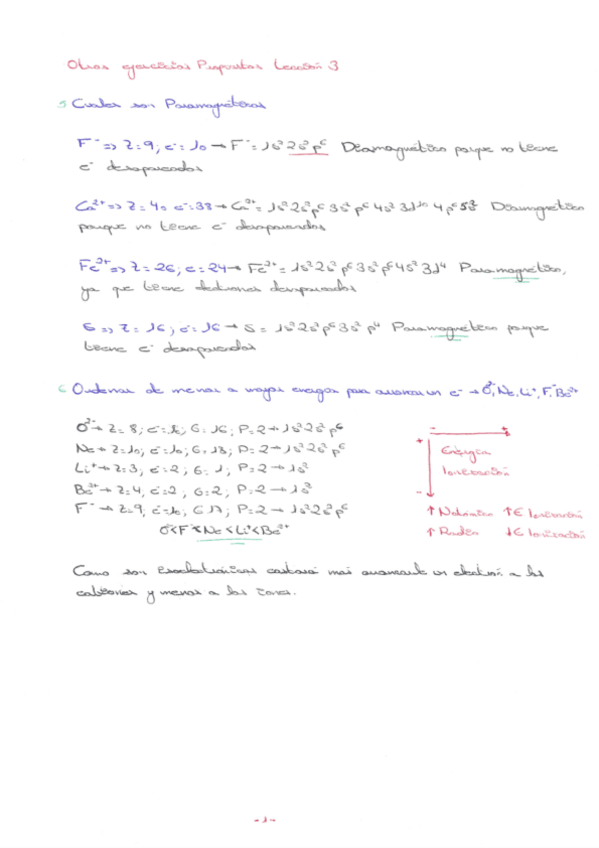 Otros ejercicios Propuestos Lección 3
5 Cuales son Paramagnéticos
F⁻ => Z=9; e⁻=10 → F⁻= 1s² 2s² p⁶ Diamagnético porque no tiene
e⁻ desapareados
Ca²⁺ => Z=40 e⁻=38 → Ca²⁺= 1s² 2s² p⁶ 3s² p⁶ 4s² 3d¹⁰ 4p⁶ 5s² Diamagnético
porque no tiene e⁻ desapareados
Fe²⁺ => Z=26; e=24 → Fe²⁺= 1s² 2s² p⁶ 3s² p⁶ 4s² 3d⁴ Paramagnético,
ya que tiene electrones desapareados
S => Z=16; e⁻=16 → S= 1s² 2s² p⁶ 3s² p⁴ Paramagnético porque
tiene e⁻ desapareados
6 Ordenar de menor a mayor energía para arrancar un e⁻ → O²⁻, Ne, Li⁺, F⁻, Be²⁺
O²⁻ → Z=8; e⁻= ; G=16; P=2 → 1s² 2s² p⁶
Ne → Z=10; e⁻=10; G=18; P=2 → 1s² 2s² p⁶
Li⁺ → Z=3; e⁻=2; G=1; P=2 → 1s²
Be²⁺ → Z=4, e⁻=2, G=2; P=2 → 1s²
F⁻ → Z=9; e⁻=10; G 17; P=2 → 1s² 2s² p⁶
O²⁻<F⁻<Ne<Li⁺<Be²⁺
- +
+ Energía
Ionización
-
↑ Nº Atómico ↑E Ionización
↑ Radio ↓E Ionización
Como son isoelectrónicos costará más arrancarle un electrón a los
cationes y menos a los iones.
-1-